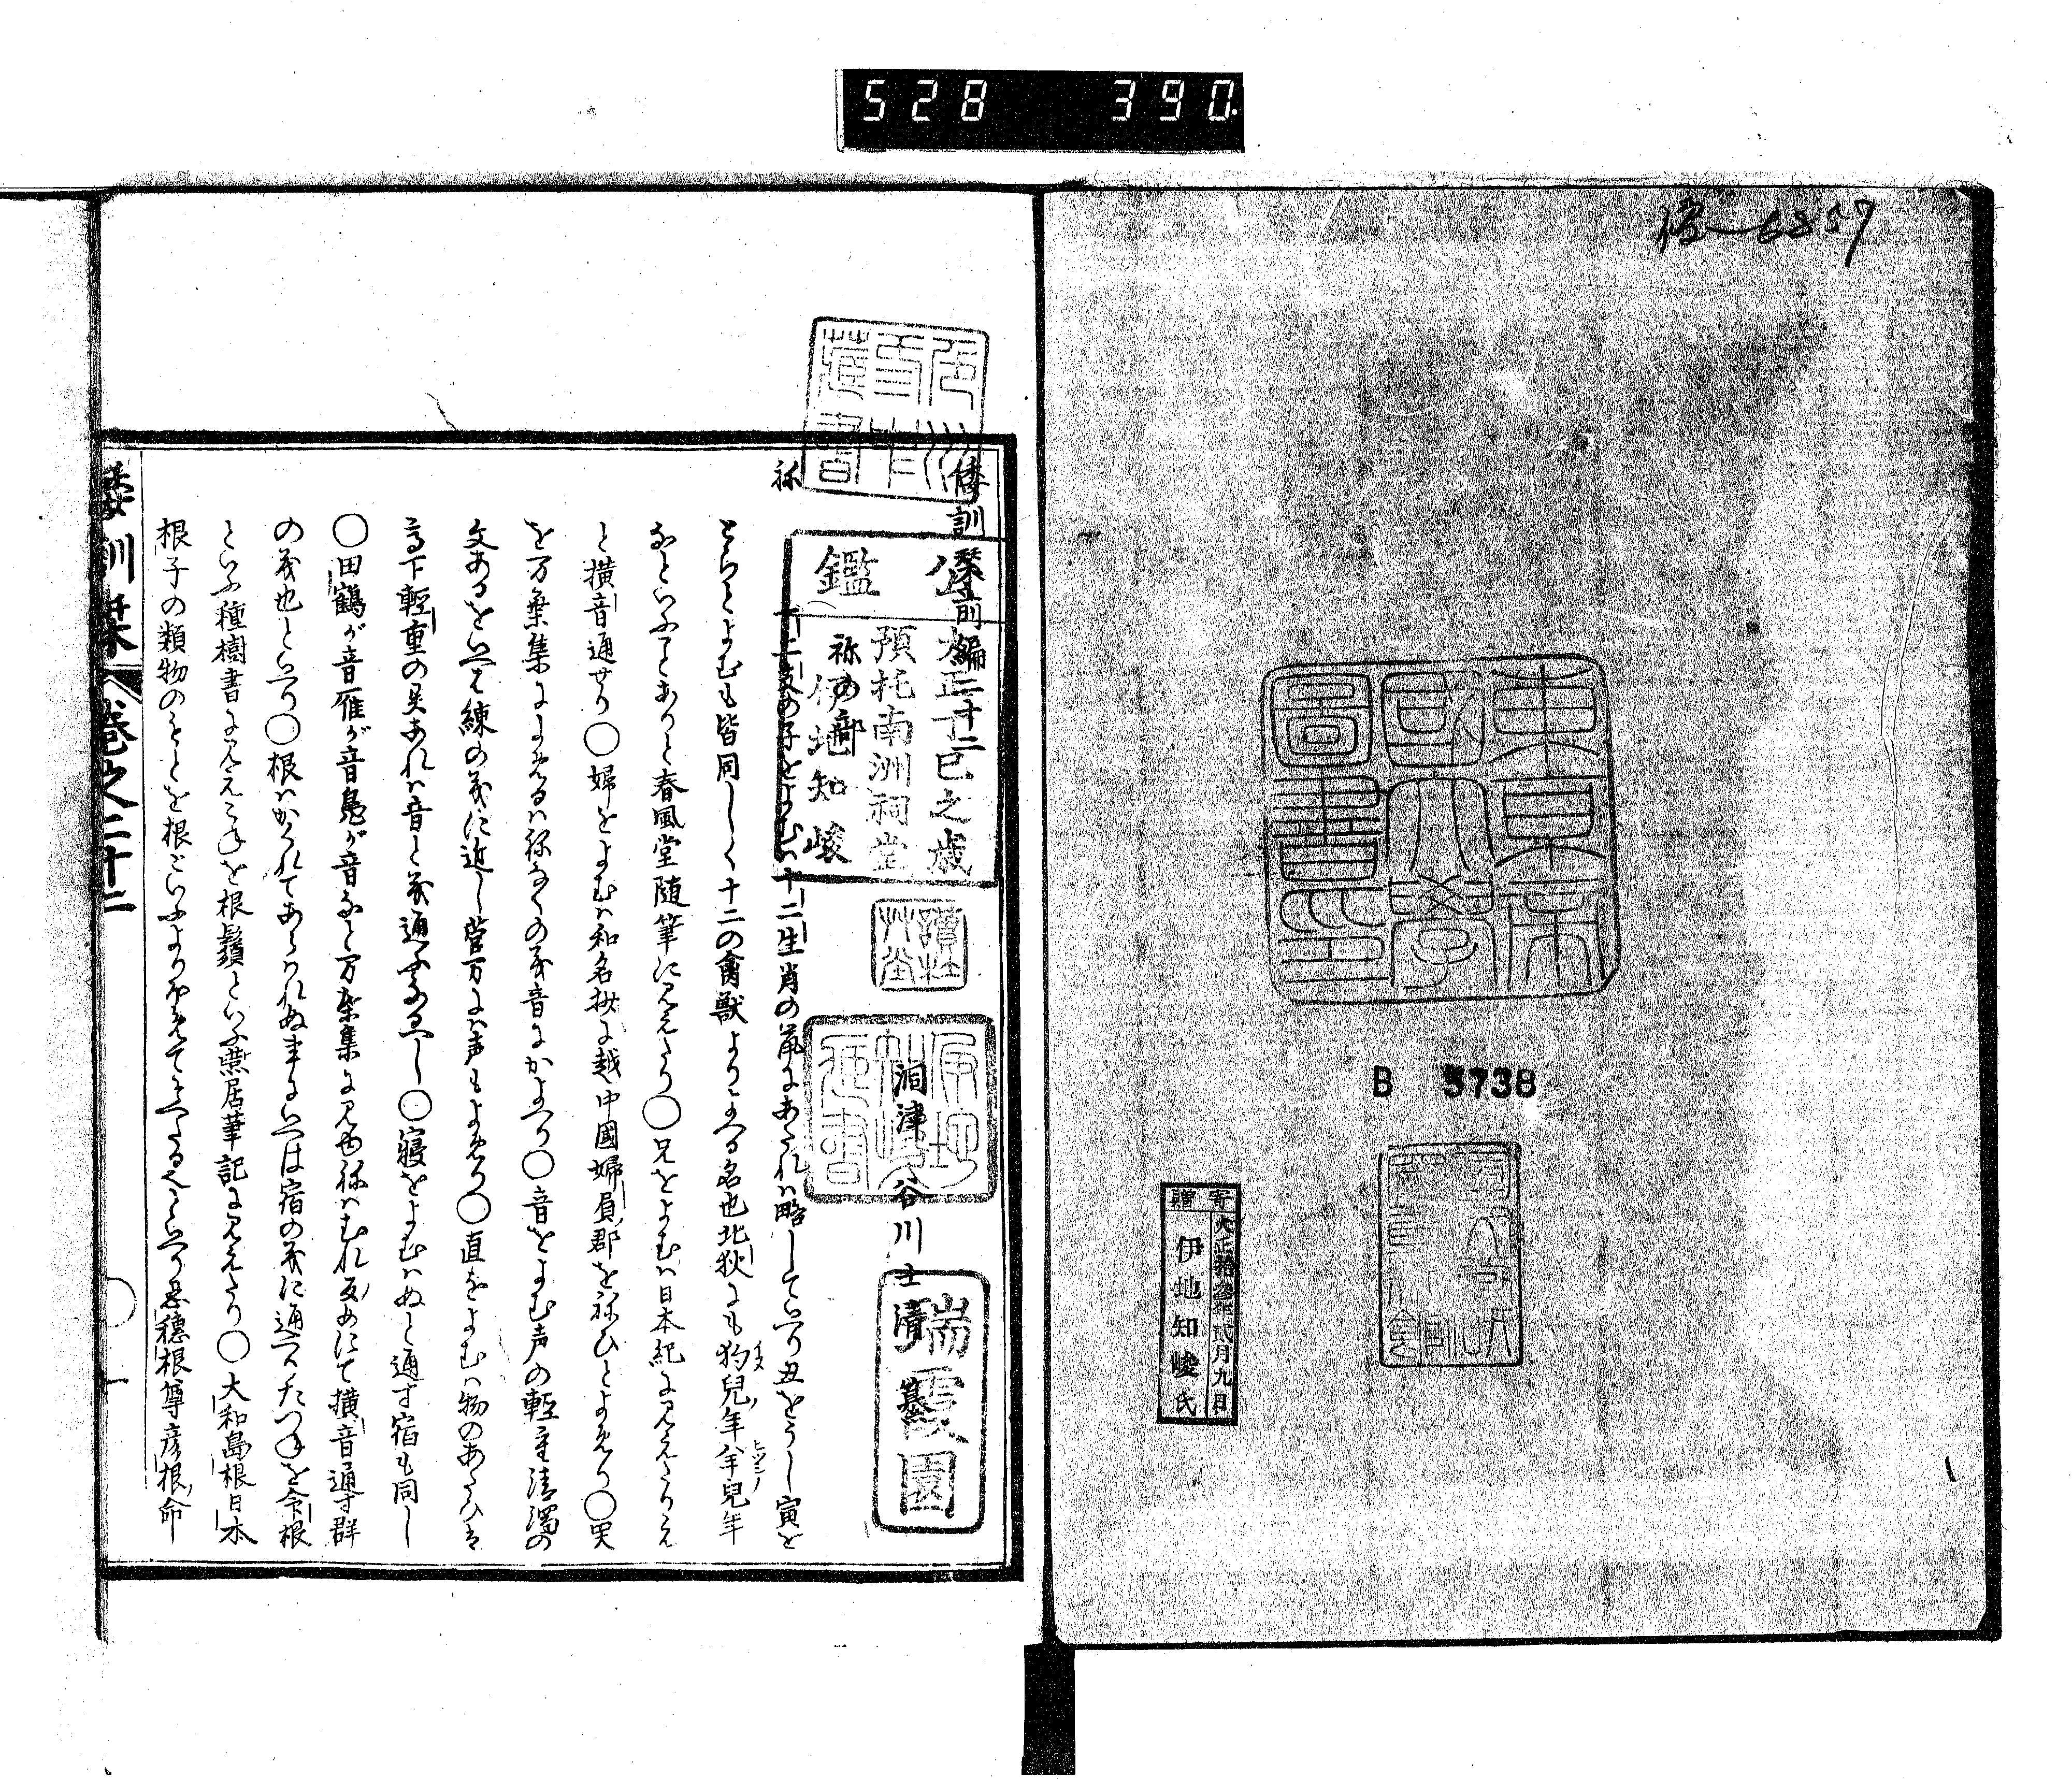 528 390
B 5738
東京帝
國大學
圖書印
寄贈
大正拾參年貳月九日
伊地知峻氏
倭訓栞前編二十二
祢の部
洞津 谷川士清 纂
公鑑
大正丁巳之歳
預托南洲祠堂
伊地知峻
瑞霞園
祢 十二支の子をよむハ十二生肖の鼠にあたれハ略していへり丑をうし寅を
とらとよむも皆同しく十二の禽獣よりいへる名也北狄にも狗児年羊児年
なといふことありと春風堂随筆に見えたり〇兄をよむハ日本紀に見えたりえ
と横音通せり〇婦をよむハ和名抄に越中國婦負郡を祢ひとよめり〇哭
を万葉集によめるハ祢なくの義音にかよへり〇音をよむ声の輕重清濁の
文あるをいへは練の義に近し菅万にハ声もよめり〇直をよむハ物のあたひは
高下輕重の異あれハ音と義通ふなるへし〇寝をよむハぬと通す宿も同し
〇田鶴が音雁が音鳧が音なと万葉集に見ゆ祢ハむれ反めにて横音通す群
の義也といへり〇根ハかくれてあらハれぬ事にいへは宿の義に通へりたつねを令根
といふ種樹書に見えこねを根鬚といふ燕居筆記に見えたり〇大和島根日本
根子の類物のもとを根といふよりほめてそへたる也といへり忍穂根尊彦根命
倭訓栞 巻之二十二 一